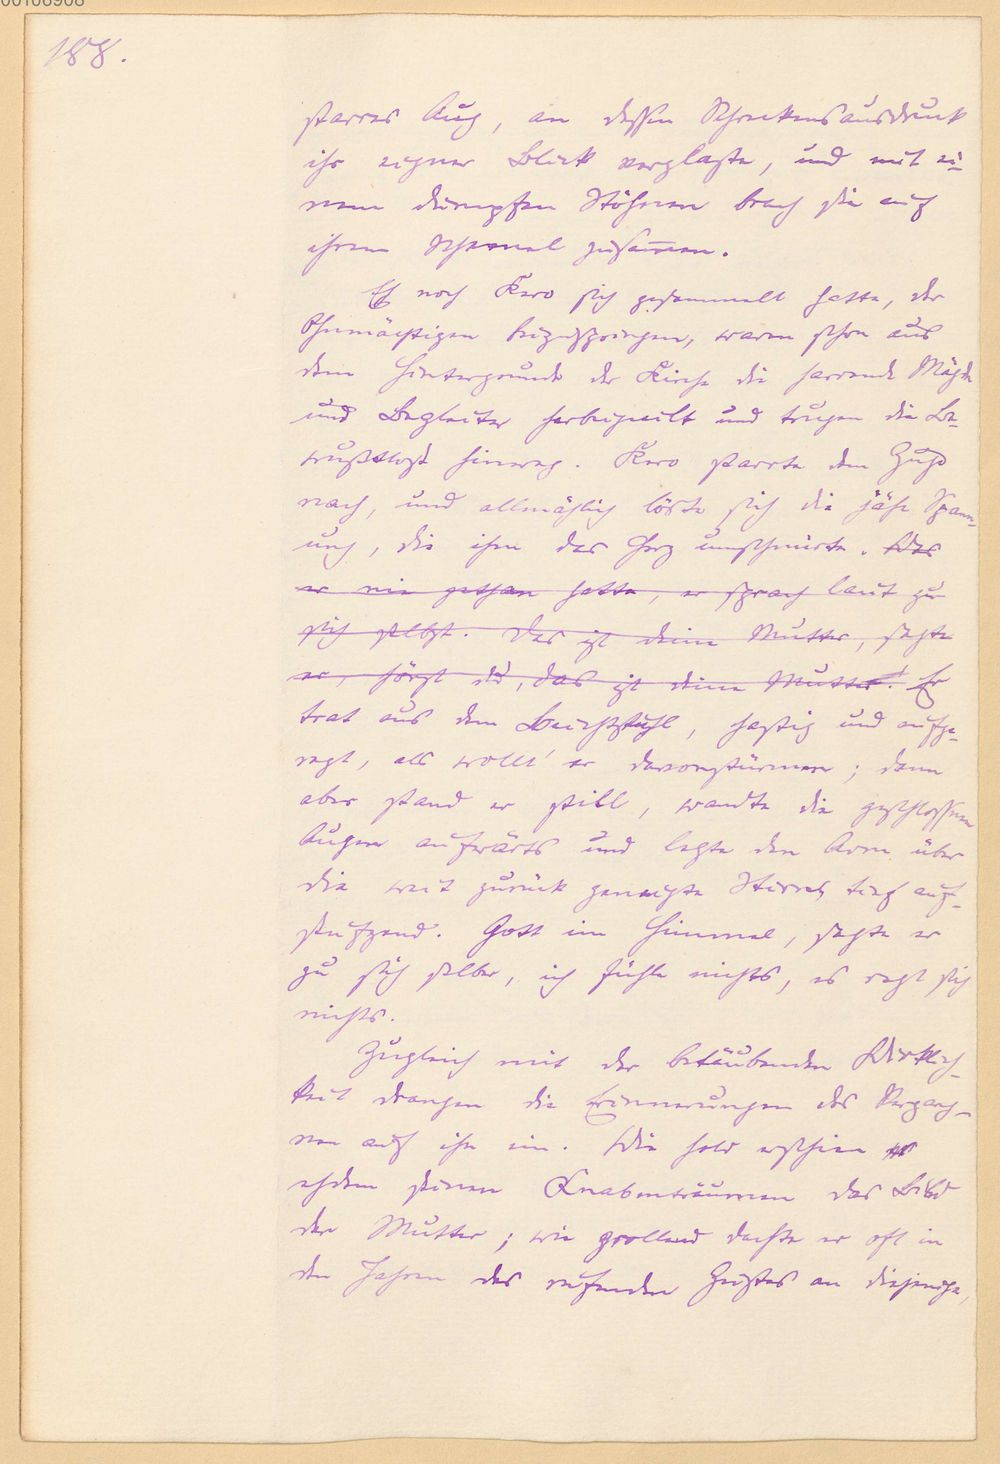 00106908
188.
starres Aug, an dessen Schreckensausdruck
ihr eigner Blick verglaste, und mit ei-
nem dumpfen Stöhnen brach sie auf
ihrem Schemel zusammen.
Eh noch Kero sich gesammelt hatte, der
Ohnmächtigen beizuspringen, waren schon aus
dem Hintergrunde der Kirche die harrende Mägde
und Begleiter herbeigeeilt und trugen die Be-
wußtlose hinweg. Kero starrte dem Zuge
nach, und allmählich löste sich die jähe Span-
ung, die ihm das Herz umschnürte. Was
er nie gethan hatte, er sprach laut zu
sich selbst. Das ist deine Mutter, sagte
er, hörst du, das ist deine Mutter! Er
trat aus dem Beichtstuhl, hastig und aufge-
regt, als wollt' er davonstürmen; dann
aber stand er still, wandte die geschlossenen
Augen aufwärts und legte den Arm über
die weit zurück geneigte Stirne, tief auf-
seufzend. Gott im Himmel, sagte er
zu sich selber, ich fühle nichts, es regt sich
nichts.
Zugleich mit der betäubenden Wirklich-
keit drangen die Erinnerungen des Vergang-
nen auf ihn ein. Wie hold erschien
ehdem seinen Knabenträumen das Bild
der Mutter; wie grollend dachte er oft in
den Jahren des reifenden Geistes an diejenige,